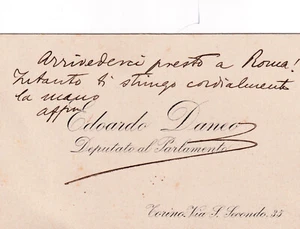 Arrivederci presto a Roma!
Intanto ti stringo cordialmente
la mano
affmo
Edoardo Daneo
Deputato al Parlamento
Torino, Via S. Secondo, 35